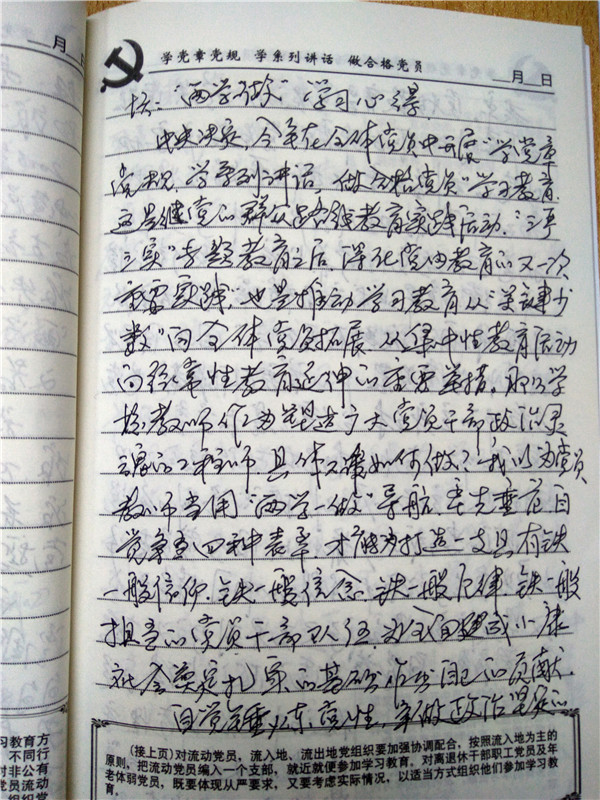 学党章党规 学系列讲话 做合格党员
月 日
月 日
"两学一做"学习心得
中央决定，今年在全体党员中开展"学党章
党规、学系列讲话，做合格党员"学习教育。
这是继党的群众路线教育实践活动、"三严
三实"专题教育之后，深化党内教育的又一次
重要实践，也是推动学习教育从"关键少
数"向全体党员拓展、从集中性教育活动
向经常性教育延伸的重要举措。
教师作为塑造广大党员干部政治灵
魂的工程师 具体又该如何做？我认为党员
教师当用"两学一做"导航，率先垂范自
觉争当四种表率，才能为打造一支具有铁
一般信仰、铁一般信念、铁一般纪律、铁一般
担当的党员干部队伍，为全面建成小康
社会奠定扎实的基础作出自己的贡献。
自觉 党性，争做政治坚定的
习教育方
不同行
对非公有
员流动
织党
(接上页)对流动党员，流入地、流出地党组织要加强协调配合，按照流入地为主的
原则，把流动党员编入一个支部，就近就便参加学习教育。对离退休干部职工党员及年
老体弱党员，既要体现从严要求，又要考虑实际情况，以适当方式组织他们参加学习教
育。